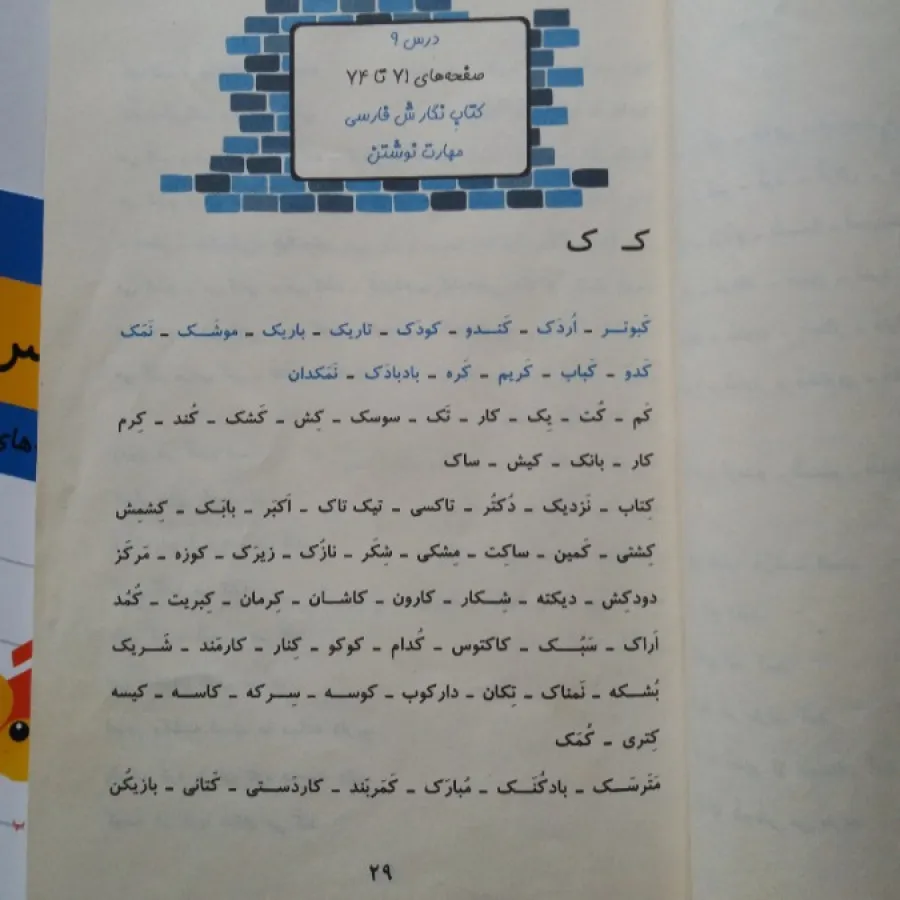 درس ۹
صفحه‌های ۷۱ تا ۷۴
کتابِ نگارش فارسی
مهارت نوشتن
کـ ک
کَبوتَر ـ اُردَک ـ کَندو ـ کودَک ـ تاریک ـ باریک ـ موشَک ـ نَمَک
کَدو ـ کَباب ـ کَریم ـ کَره ـ بادبادَک ـ نَمَکدان
کَم ـ کُت ـ یِک ـ کار ـ تَک ـ سوسک ـ کِش ـ کَشک ـ کُند ـ کِرم
کار ـ بانک ـ کیش ـ ساک
کِتاب ـ نَزدیک ـ دُکتُر ـ تاکسی ـ تیک تاک ـ اَکبَر ـ بابَک ـ کِشمِش
کِشتی ـ کَمین ـ ساکِت ـ مِشکی ـ شِکَر ـ نازُک ـ زیرَک ـ کوزه ـ مَرکَز
دودکِش ـ دیکته ـ شِکار ـ کارون ـ کاشان ـ کِرمان ـ کِبریت ـ کُمُد
اَراک ـ سَبُک ـ کاکتوس ـ کُدام ـ کوکو ـ کِنار ـ کارمَند ـ شَریک
بُشکه ـ نَمناک ـ تِکان ـ دارکوب ـ کوسه ـ سِرکه ـ کاسه ـ کیسه
کِتری ـ کُمَک
مَتَرسَک ـ بادکُنَک ـ مُبارَک ـ کَمَربَند ـ کاردَستی ـ کَتانی ـ بازیکُن
۲۹
های